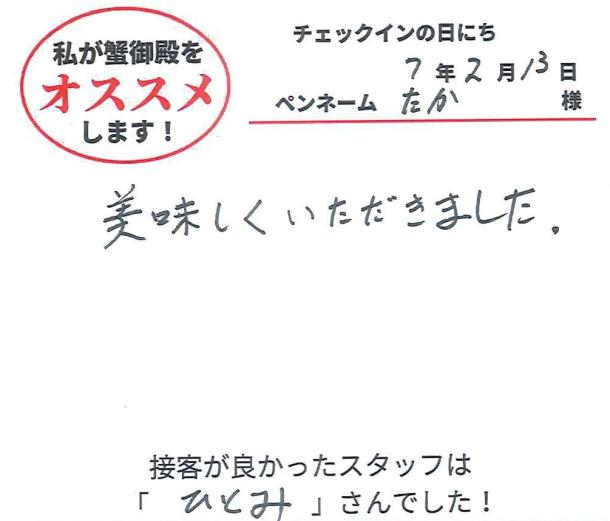 私が蟹御殿を
オススメ
します！
チェックインの日にち
7年2月13日
ペンネーム たか 様
美味しくいただきました。
接客が良かったスタッフは
「 ひとみ 」さんでした！